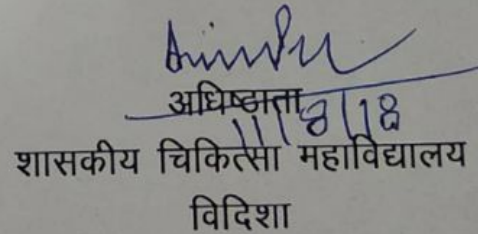 अधिष्ठाता
11/8/18
शासकीय चिकित्सा महाविद्यालय
विदिशा